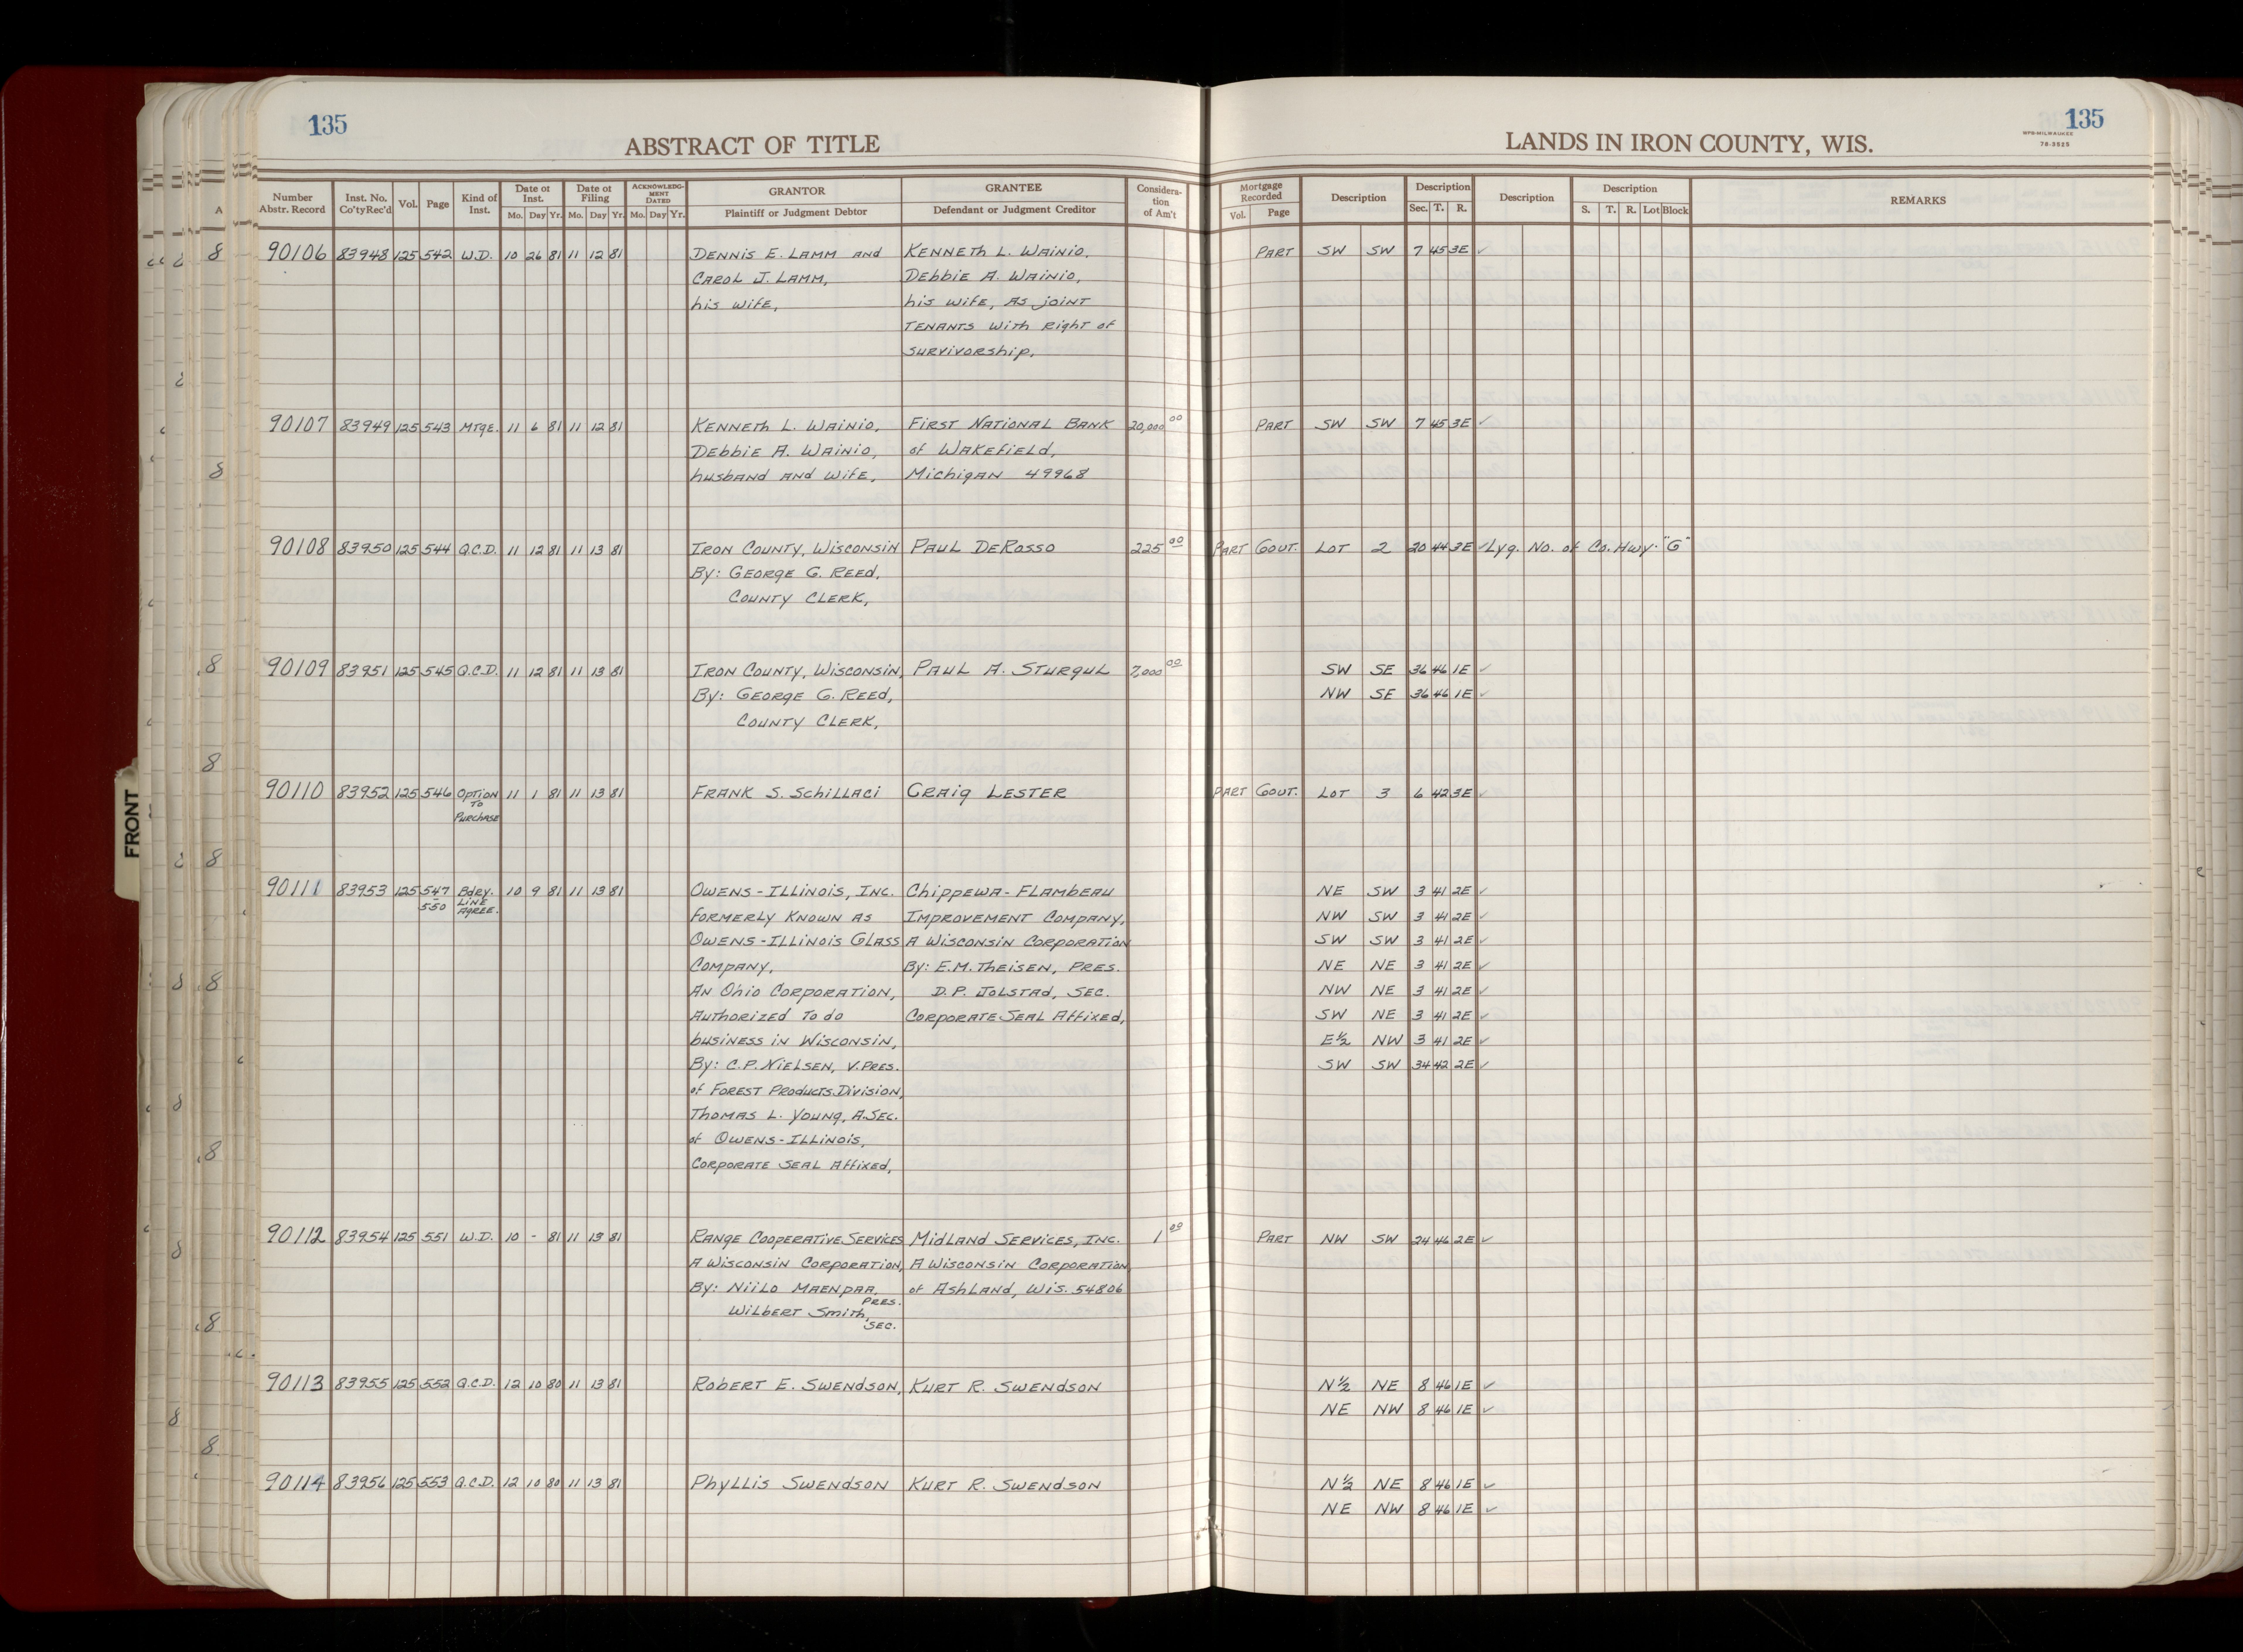 135
ABSTRACT OF TITLE
LANDS IN IRON COUNTY, WIS.
135
NPB-MILWAUKEE
78-5525
Number Abstr. Record | Inst. No. Co'ty Rec'd | Vol. | Page | Kind of Inst. | Date of Inst. Mo. Day Yr. | Date of Filing Mo. Day Yr. | ACKNOWLEDGMENT DATED Mo. Day Yr. | GRANTOR Plaintiff or Judgment Debtor | GRANTEE Defendant or Judgment Creditor | Consideration of Am't | Mortgage Recorded Vol. Page | Description | Description Sec. T. R. | Description | Description S. T. R. Lot Block | REMARKS
90106 83948 125 542 W.D. 10 26 81 11 12 81 DENNIS E. LAMM AND KENNETH L. WAINIO, PART SW SW 7 45 3E ✓
CAROL J. LAMM, DEBBIE A. WAINIO,
his wife, his wife, AS joint
TENANTS with Right of
SURVIVORSHIP.
90107 83949 125 543 MTGE. 11 6 81 11 12 81 KENNETH L. WAINIO, FIRST NATIONAL BANK 20,000 00 PART SW SW 7 45 3E ✓
DEBBIE A. WAINIO, of WAKEFIELD,
husband and wife, Michigan 49968
90108 83950 125 544 Q.C.D. 11 12 81 11 13 81 IRON COUNTY, WISCONSIN PAUL DeROSSO 225 00 PART GOVT. LOT 2 20 44 3E ✓ Lyg. No. of Co. Hwy. "G"
By: GEORGE G. REED,
COUNTY CLERK,
90109 83951 125 545 Q.C.D. 11 12 81 11 13 81 IRON COUNTY, WISCONSIN, PAUL A. STURGUL 7,000 00 SW SE 36 46 1E ✓
By: GEORGE G. REED, NW SE 36 46 1E ✓
COUNTY CLERK,
90110 83952 125 546 OPTION TO PURCHASE 11 1 81 11 13 81 FRANK S. SCHILLACI CRAIG LESTER PART GOVT. LOT 3 6 42 3E ✓
90111 83953 125 547-550 Bdry. LINE AGREE. 10 9 81 11 13 81 OWENS-ILLINOIS, INC. CHIPPEWA-FLAMBEAU NE SW 3 41 2E ✓
FORMERLY KNOWN AS IMPROVEMENT COMPANY, NW SW 3 41 2E ✓
OWENS-ILLINOIS GLASS A WISCONSIN CORPORATION SW SW 3 41 2E ✓
COMPANY, By: E.M. THEISEN, PRES. NE NE 3 41 2E ✓
AN OHIO CORPORATION, D.P. JOLSTAD, SEC. NW NE 3 41 2E ✓
AUTHORIZED TO do CORPORATE SEAL AFFIXED, SW NE 3 41 2E ✓
business in WISCONSIN, E½ NW 3 41 2E ✓
By: C.P. NIELSEN, V.PRES. SW SW 34 42 2E ✓
of FOREST PRODUCTS DIVISION,
THOMAS L. YOUNG, A.SEC.
of OWENS-ILLINOIS,
CORPORATE SEAL AFFIXED,
90112 83954 125 551 W.D. 10 - 81 11 13 81 RANGE COOPERATIVE SERVICES MIDLAND SERVICES, INC. 1 00 PART NW SW 24 46 2E ✓
A WISCONSIN CORPORATION, A WISCONSIN CORPORATION,
By: NIILO MAENPAA, PRES. of ASHLAND, WIS. 54806
WILBERT SMITH, SEC.
90113 83955 125 552 Q.C.D. 12 10 80 11 13 81 ROBERT E. SWENDSON, KURT R. SWENDSON N½ NE 8 46 1E ✓
NE NW 8 46 1E ✓
90114 83956 125 553 Q.C.D. 12 10 80 11 13 81 PHYLLIS SWENDSON KURT R. SWENDSON N½ NE 8 46 1E ✓
NE NW 8 46 1E ✓
FRONT